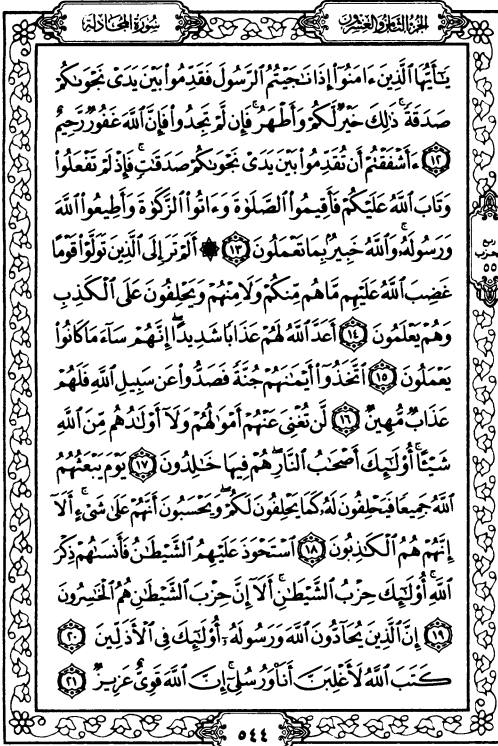 سُورَةُ المُجَادلة
الجُزءُ الثَّامِنُ وَالعِشرُونَ
يَٰٓأَيُّهَا ٱلَّذِينَ ءَامَنُوٓا۟ إِذَا نَٰجَيْتُمُ ٱلرَّسُولَ فَقَدِّمُوا۟ بَيْنَ يَدَىْ نَجْوَىٰكُمْ
صَدَقَةً ۚ ذَٰلِكَ خَيْرٌ لَّكُمْ وَأَطْهَرُ ۚ فَإِن لَّمْ تَجِدُوا۟ فَإِنَّ ٱللَّهَ غَفُورٌ رَّحِيمٌ
١٢ ءَأَشْفَقْتُمْ أَن تُقَدِّمُوا۟ بَيْنَ يَدَىْ نَجْوَىٰكُمْ صَدَقَٰتٍ ۚ فَإِذْ لَمْ تَفْعَلُوا۟
وَتَابَ ٱللَّهُ عَلَيْكُمْ فَأَقِيمُوا۟ ٱلصَّلَوٰةَ وَءَاتُوا۟ ٱلزَّكَوٰةَ وَأَطِيعُوا۟ ٱللَّهَ
وَرَسُولَهُۥ ۚ وَٱللَّهُ خَبِيرٌۢ بِمَا تَعْمَلُونَ ١٣ ۞ أَلَمْ تَرَ إِلَى ٱلَّذِينَ تَوَلَّوْا۟ قَوْمًا
غَضِبَ ٱللَّهُ عَلَيْهِم مَّا هُم مِّنكُمْ وَلَا مِنْهُمْ وَيَحْلِفُونَ عَلَى ٱلْكَذِبِ
وَهُمْ يَعْلَمُونَ ١٤ أَعَدَّ ٱللَّهُ لَهُمْ عَذَابًا شَدِيدًا ۖ إِنَّهُمْ سَآءَ مَا كَانُوا۟
يَعْمَلُونَ ١٥ ٱتَّخَذُوٓا۟ أَيْمَٰنَهُمْ جُنَّةً فَصَدُّوا۟ عَن سَبِيلِ ٱللَّهِ فَلَهُمْ
عَذَابٌ مُّهِينٌ ١٦ لَّن تُغْنِىَ عَنْهُمْ أَمْوَٰلُهُمْ وَلَآ أَوْلَٰدُهُم مِّنَ ٱللَّهِ
شَيْـًٔا ۚ أُو۟لَٰٓئِكَ أَصْحَٰبُ ٱلنَّارِ ۖ هُمْ فِيهَا خَٰلِدُونَ ١٧ يَوْمَ يَبْعَثُهُمُ
ٱللَّهُ جَمِيعًا فَيَحْلِفُونَ لَهُۥ كَمَا يَحْلِفُونَ لَكُمْ ۖ وَيَحْسَبُونَ أَنَّهُمْ عَلَىٰ شَىْءٍ ۚ أَلَآ
إِنَّهُمْ هُمُ ٱلْكَٰذِبُونَ ١٨ ٱسْتَحْوَذَ عَلَيْهِمُ ٱلشَّيْطَٰنُ فَأَنسَىٰهُمْ ذِكْرَ
ٱللَّهِ ۚ أُو۟لَٰٓئِكَ حِزْبُ ٱلشَّيْطَٰنِ ۚ أَلَآ إِنَّ حِزْبَ ٱلشَّيْطَٰنِ هُمُ ٱلْخَٰسِرُونَ
١٩ إِنَّ ٱلَّذِينَ يُحَآدُّونَ ٱللَّهَ وَرَسُولَهُۥٓ أُو۟لَٰٓئِكَ فِى ٱلْأَذَلِّينَ ٢٠
كَتَبَ ٱللَّهُ لَأَغْلِبَنَّ أَنَا۠ وَرُسُلِىٓ ۚ إِنَّ ٱللَّهَ قَوِىٌّ عَزِيزٌ ٢١
٥٤٤